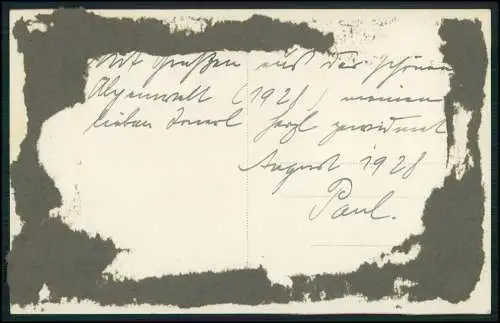 Mit Grüßen aus der schönen
Alpenwelt (1928) meinem
lieben herzl gewidmet
August 1928
Paul.